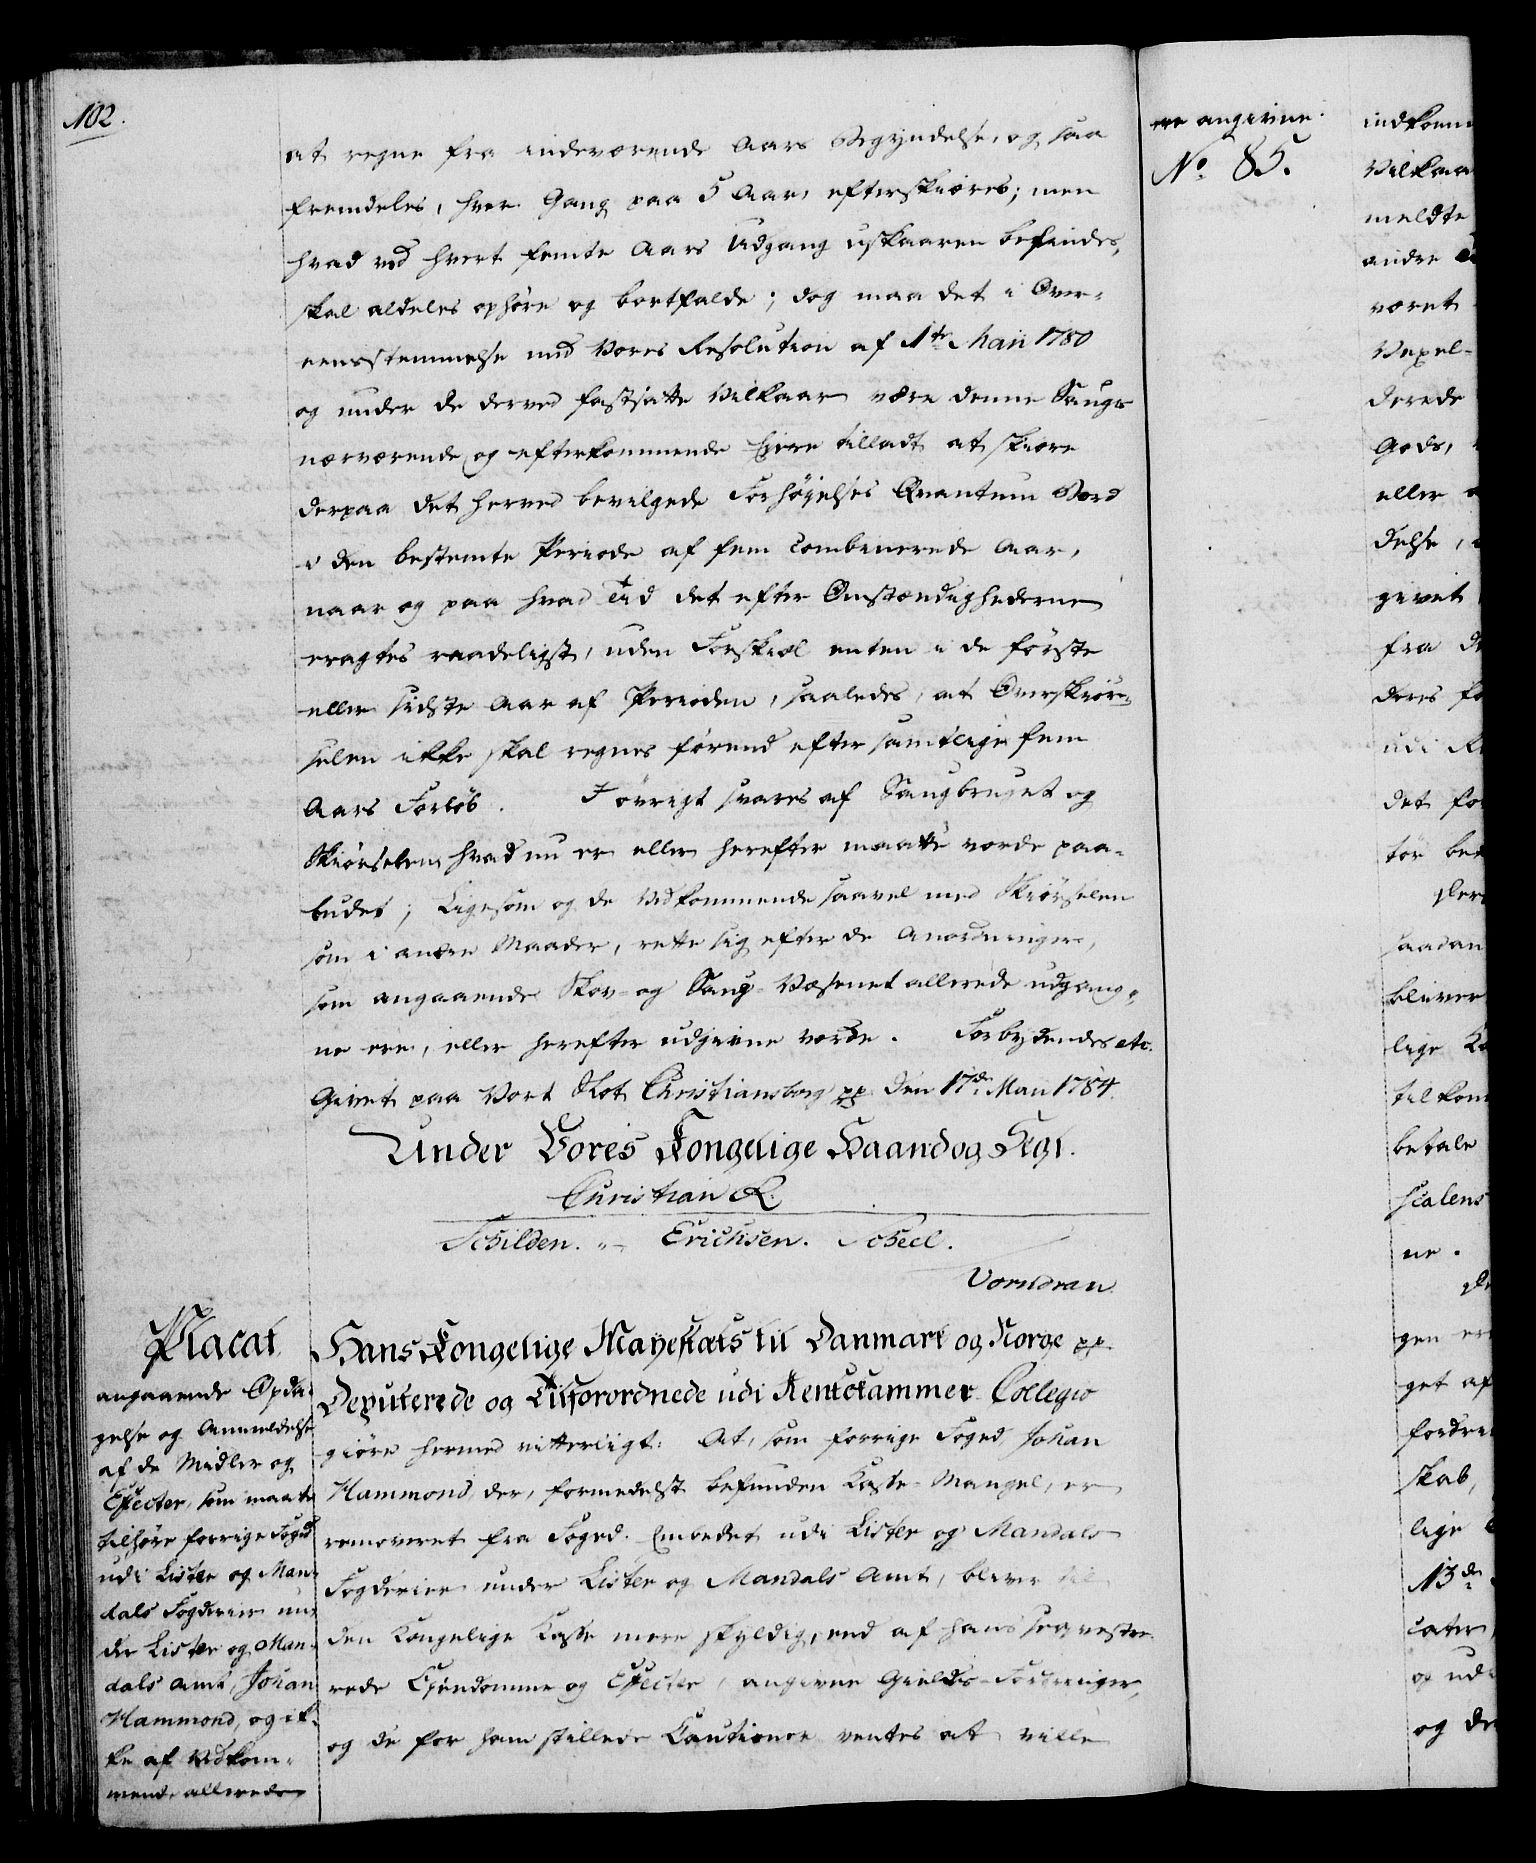 102.
at regne fra indeværende Aars Begyndelse, og saa
fremdeles, hver Gang paa 5 Aar, efterskiæres; men
hvad ved hvert femte Aars Udgang uskaaren befindes,
skal aldeles ophøre og bortfalde; dog maa det i Over-
eensstemmelse med Vores Resolution af 1te Maii 1780
og under de derved fastsatte Vilkaar være denne Saugs
nærværende og efterkommende Eiere tilladt at skiære
derpaa det herved bevilgede Forhøyelses Qvantum Bord
i den bestemte Periode af fem combinerede Aar,
naar og paa hvad Tid det efter Omstændighederne
eragtes raadeligst, uden Forskiæl enten i de første
eller sidste Aar af Perioden, saaledes, at Overskiør-
selen ikke skal regnes førend efter samtlige fem
Aars Forløb. I øvrigt svares af Saugbruget og
Skiørselen hvad nu er eller herefter maatte vorde paa-
budet; Ligesom og de Vedkommende saavel med Skiørselen
som i andre Maader, rette sig efter de Anordninger,
som angaaende Skov- og Saug-Væsenet allerede udgang-
ne ere, eller herefter udgivne vorde. Forbydendes etc.
Givet paa Vort Slot Christiansborg pp den 17de Maii 1784.
Under Vores Kongelige Haand og Segl.
Christian R.
Schilden. Erichsen. Scheel.
Vorndran.
Placat
angaaende Opda-
gelse og Anmeldelse
af de Midler og
Effecter, som maatte
tilhøre forrige Foged
udi Lister og Man-
dals Fogderier un-
der Lister og Man-
dals Amt, Johan
Hammond, og ik-
ke af Vedkom-
mende allerede
Hans Kongelige Mayestæts til Danmark og Norge pp.
Deputerede og Tilforordnede udi Rentekammer-Collegio
giøre hermed vitterligt: At, som forrige Foged Johan
Hammond, der, formedelst befunden Kasse-Mangel, er
removeret fra Foged-Embedet udi Lister og Mandals
Fogderier under Lister og Mandals Amt, bliver til
den Kongelige Kasse mere skyldig, end af hans seqvestre-
rede Eiendomme og Effecter, angivne Gields-Fordringer,
og de for ham stillede Cautioner ventes at ville
ere angivne.
No. 85.
indkomm
Vilkaa
meldte
andre
været
Vexel-
derede
Gods,
eller
delse,
givet
fra
deres
udi
det
tør
saadan
bliver
lige
tilkom
betale
scalens
ne.
gen
get af
fordre
skab,
lige
13de
cater,
og ud
og de